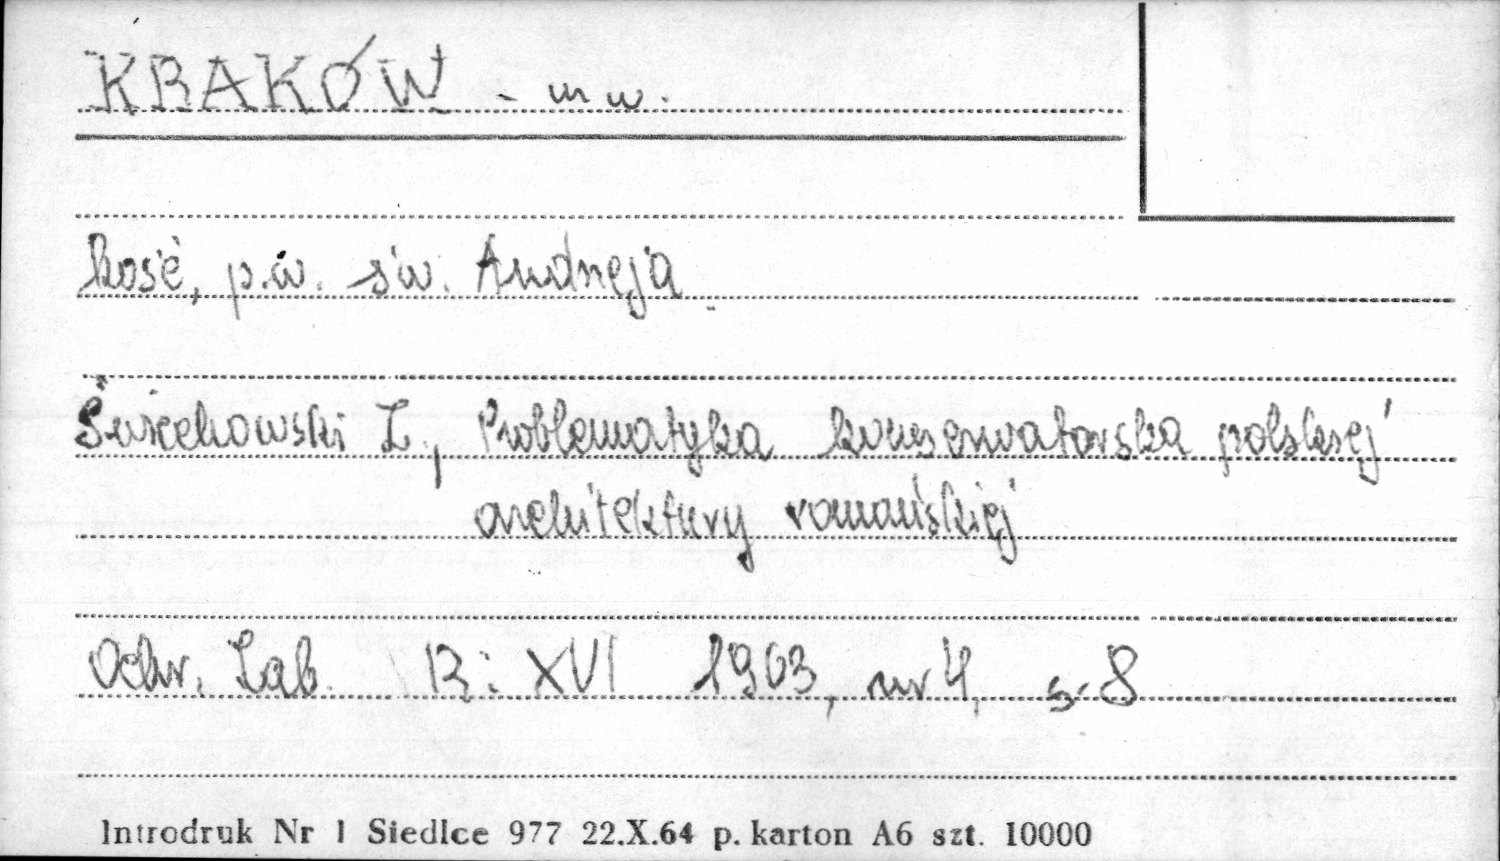 KRAKÓW - m w.
kość, p.w. św. Andrzeja
Świechowski Z., Problematyka konserwatorska polskiej
architektury romańskiej
Ochr. Zab. R: XVI 1963, nr 4, s. 8
Introdruk Nr 1 Siedlce 977 22.X.64 p. karton A6 szt. 10000